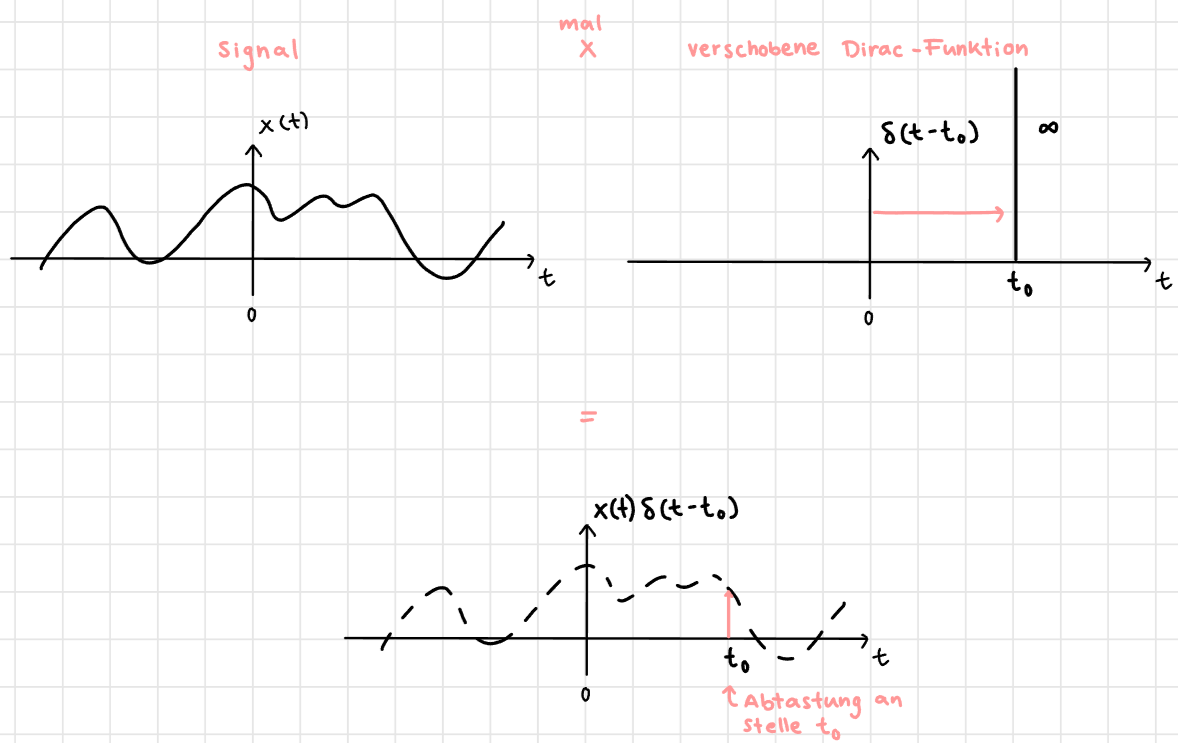 mal
Signal X verschobene Dirac-Funktion
x(t)
δ(t-t₀) ∞
t
t₀ t
0
0
=
x(t)δ(t-t₀)
t₀ t
0
Abtastung an
stelle t₀